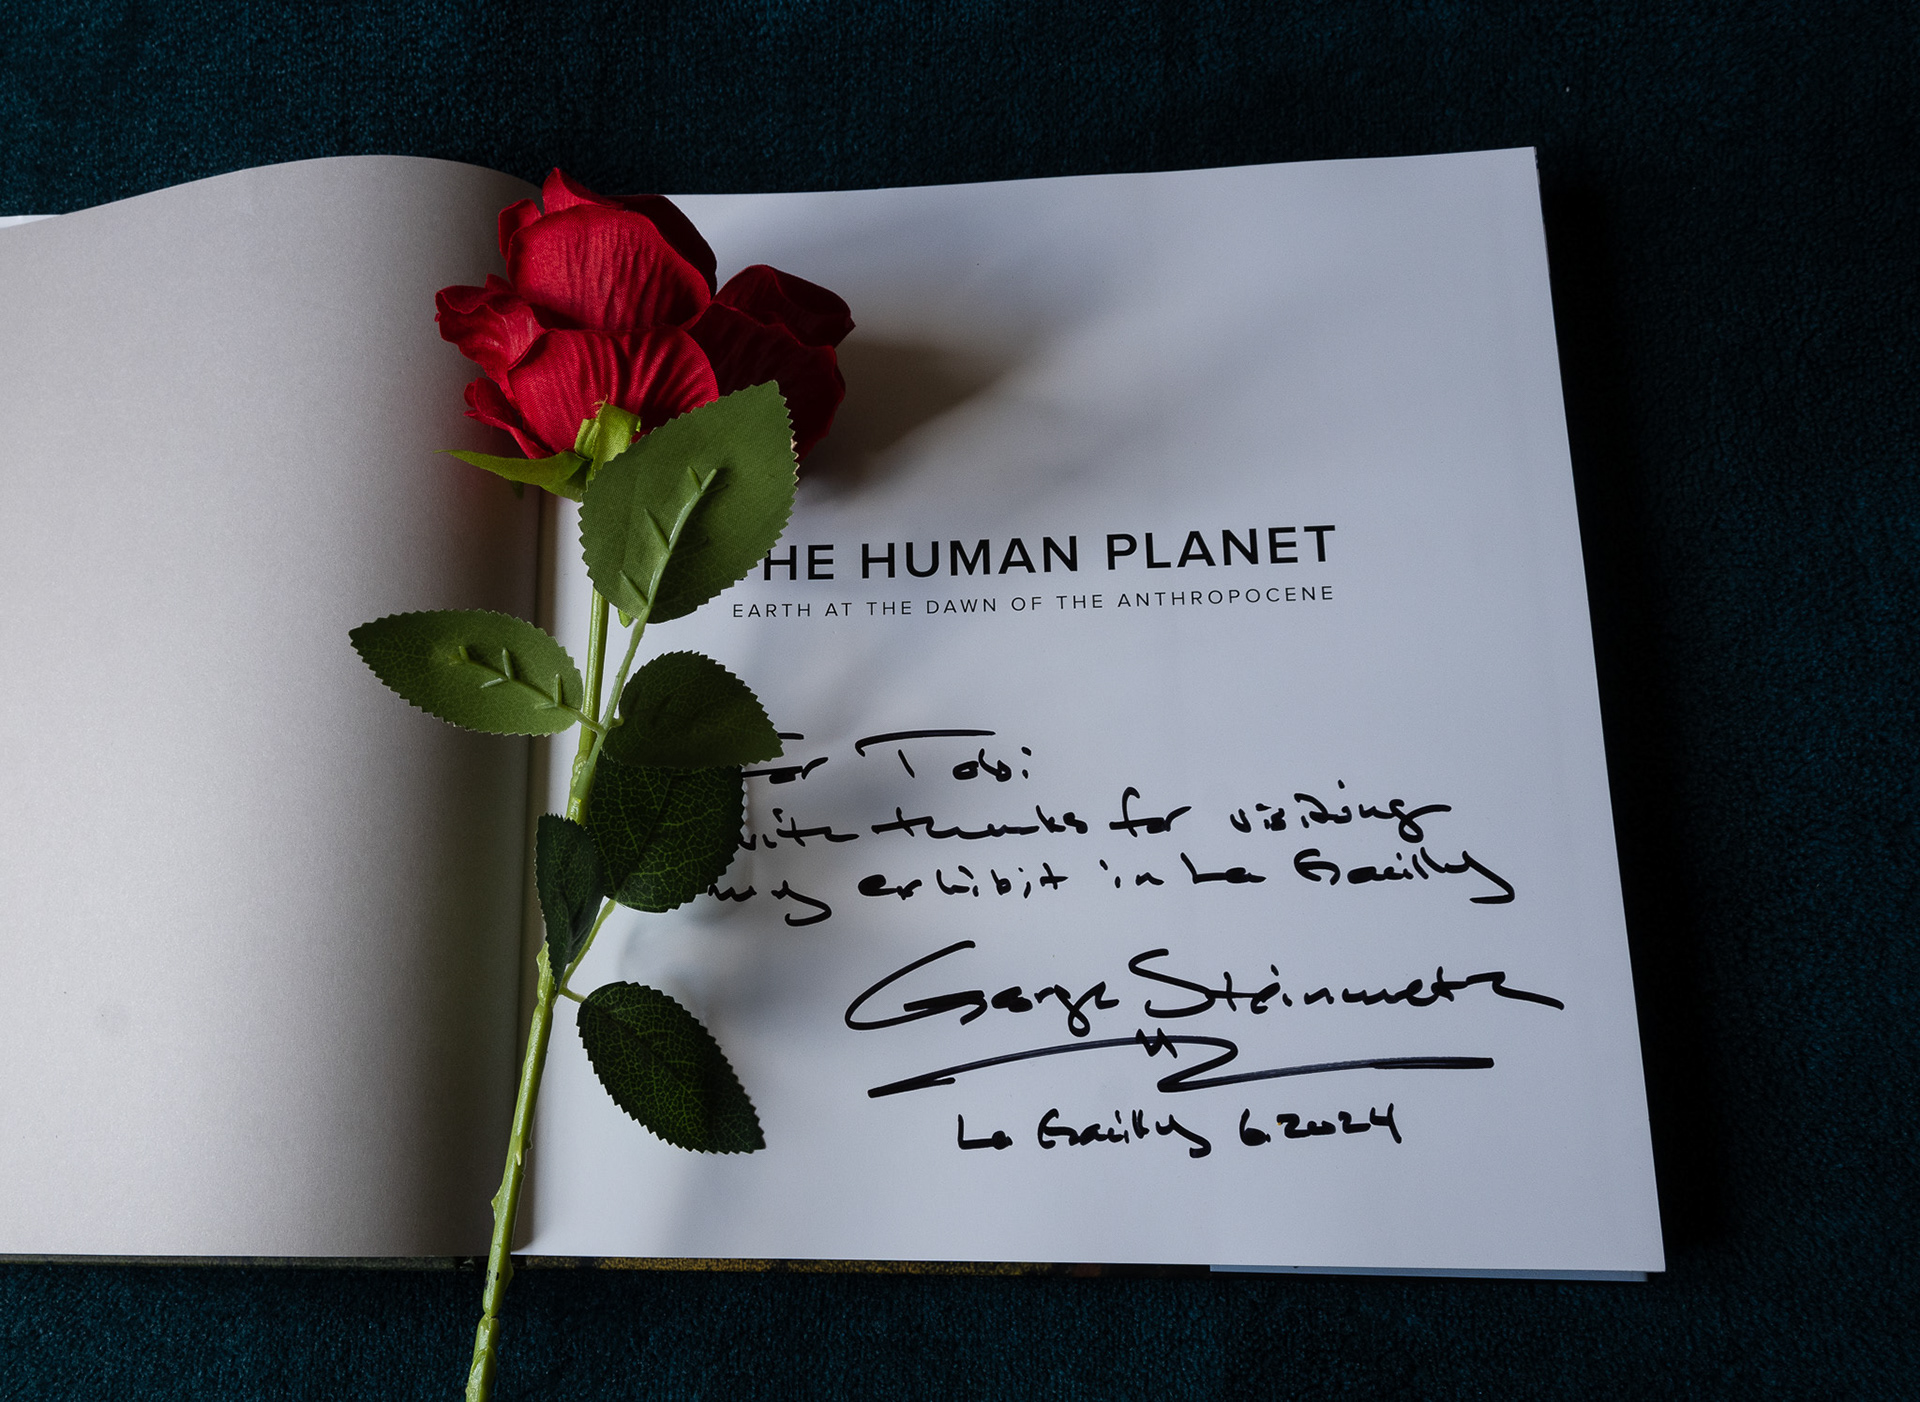 THE HUMAN PLANET
EARTH AT THE DAWN OF THE ANTHROPOCENE
For Tobi
with thanks for visiting
my exhibit in La Gacilly
George Steinmetz
La Gacilly 6.2024